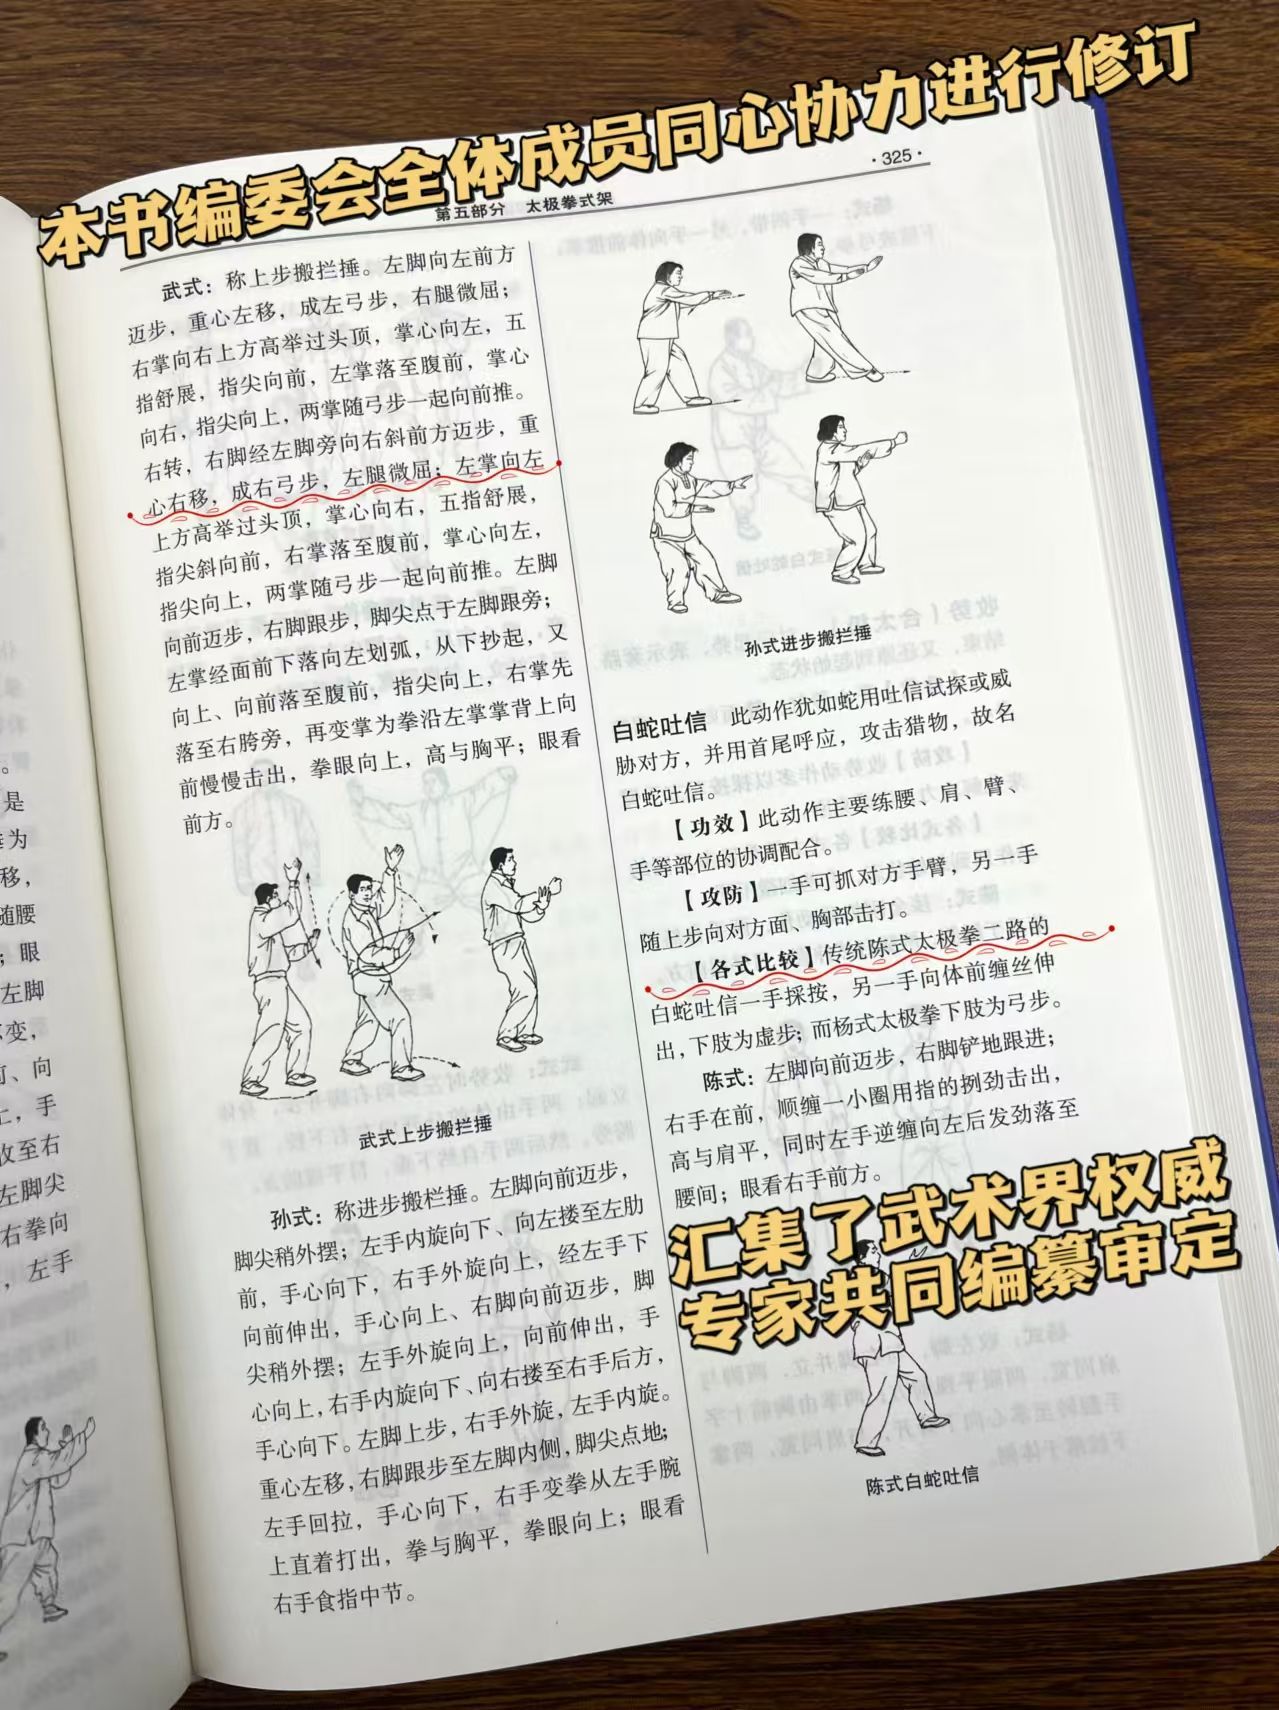 本书编委会全体成员同心协力进行修订
第五部分 太极拳式架
·325·
武式：称上步搬拦捶。左脚向左前方
迈步，重心左移，成左弓步，右腿微屈；
右掌向右上方高举过头顶，掌心向左，五
指舒展，指尖向前，左掌落至腹前，掌心
向右，指尖向上，两掌随弓步一起向前推。
右转，右脚经左脚旁向右斜前方迈步，重
心右移，成右弓步，左腿微屈；左掌向左
上方高举过头顶，掌心向右，五指舒展，
指尖斜向前，右掌落至腹前，掌心向左，
指尖向上，两掌随弓步一起向前推。左脚
向前迈步，右脚跟步，脚尖点于左脚跟旁；
左掌经面前下落向左划弧，从下抄起，又
向上、向前落至腹前，指尖向上，右掌先
落至右胯旁，再变掌为拳沿左掌掌背上向
前慢慢击出，拳眼向上，高与胸平；眼看
前方。
武式上步搬拦捶
孙式：称进步搬栏捶。左脚向前迈步，
脚尖稍外摆；左手内旋向下、向左搂至左肋
前，手心向下，右手外旋向上，经左手下
向前伸出，手心向上、右脚向前迈步，脚
尖稍外摆；左手外旋向上，向前伸出，手
心向上，右手内旋向下、向右搂至右手后方，
手心向下。左脚上步，右手外旋，左手内旋。
重心左移，右脚跟步至左脚内侧，脚尖点地；
左手回拉，手心向下，右手变拳从左手腕
上直着打出，拳与胸平，拳眼向上；眼看
右手食指中节。
孙式进步搬拦捶
白蛇吐信 此动作犹如蛇用吐信试探或威
胁对方，并用首尾呼应，攻击猎物，故名
白蛇吐信。
【功效】此动作主要练腰、肩、臂、
手等部位的协调配合。
【攻防】一手可抓对方手臂，另一手
随上步向对方面、胸部击打。
【各式比较】传统陈式太极拳二路的
白蛇吐信一手採按，另一手向体前缠丝伸
出，下肢为虚步；而杨式太极拳下肢为弓步。
陈式：左脚向前迈步，右脚铲地跟进；
右手在前，顺缠一小圈用指的挒劲击出，
高与肩平，同时左手逆缠向左后发劲落至
腰间；眼看右手前方。
汇集了武术界权威
专家共同编纂审定
陈式白蛇吐信